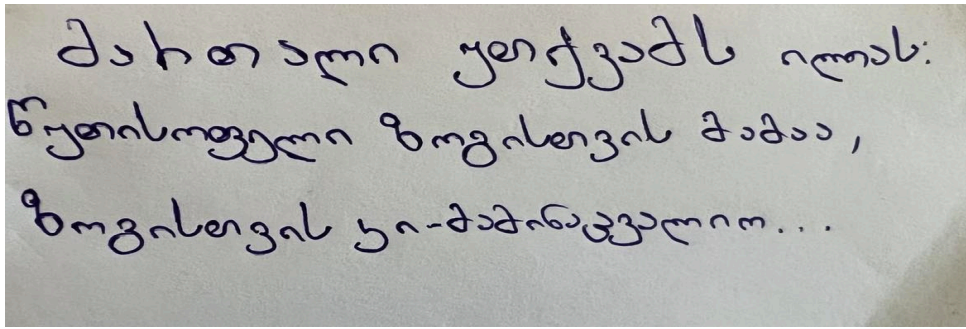 მართალი უთქვამს ილიას:
წუთისოფელი ზოგისთვის მამაა,
ზოგისთვის კი-მამინაცვალიო...